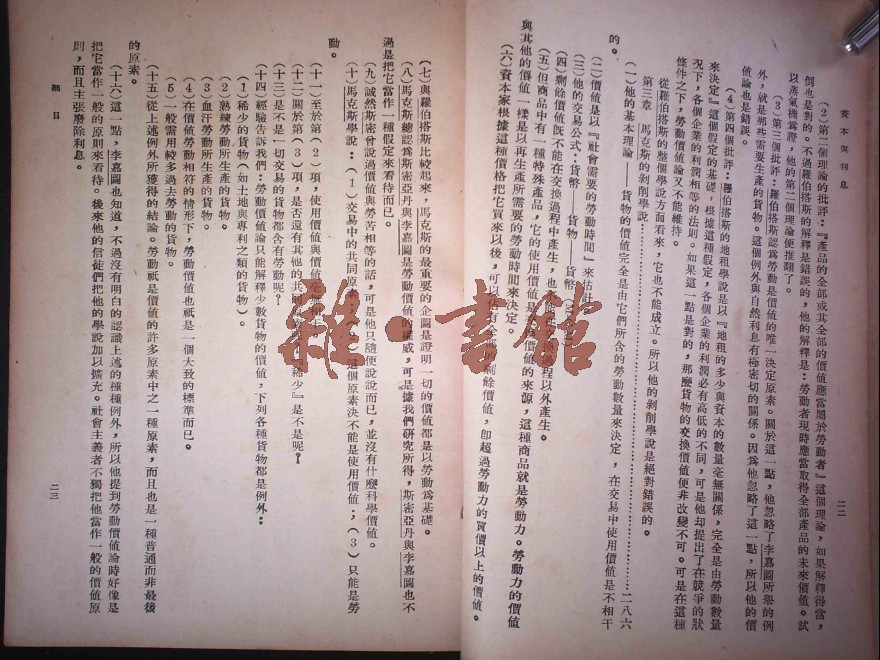 資本與利息
二二
（2）第二個理論的批評：『產品的全部或其全部的價值應當屬於勞動者』這個理論，如果解釋得當，
倒也是對的。不過羅伯搭斯的解釋是錯誤的，他的解釋是：勞動者現時應當取得全部產品的未來價值。試
以蒸氣機爲證，他的第二個理論便推翻了。
（3）第三個批評：羅伯搭斯認爲勞動是價值的唯一決定原素。關於這一點，他忽略了李嘉圖所舉的例
外，就是那些需要生產的貨物。這個例外與自然利息有極密切的關係。因爲他忽略了這一點，所以他的價
值論也是錯誤。
（4）第四個批評：羅伯搭斯的地租學說是以『地租的多少與資本的數量毫無關係，完全是由勞動數量
來決定』這個假定的基礎。根據這種假定，各個企業的利潤必有高低的不同，可是他却提出了在競爭的狀
況下，各個企業的利潤相等的法則。如果這一點是對的，那麼貨物的交換價值便非改變不可。可是在這種
條件之下，勞動價值論又不能維持。
從羅伯搭斯的整個學說方面看來，它也不能成立。所以他的剝削學說是絕對錯誤的。
第三章　馬克斯的剝削學說……………………二八六
（一）他的基本理論——貨物的價值完全是由它們所含的勞動數量來決定，在交易中使用價值是不相干
的。
（二）價值是以『社會需要的勞動時間』來估計
（三）他的交易公式：貨幣——貨物——貨幣
（四）剩餘價值既不能在交換過程中產生，也不能在交換過程以外產生。
（五）但商品中有一種特殊產品，它的使用價值是交換價值的來源，這種商品就是勞動力。勞動力的價值
與其他的價值一樣是以再生產所需要的勞動時間來決定。
（六）資本家根據這種價格把它買來以後，可以佔有全部的剩餘價值，卽超過勞動力的買價以上的價值。
（七）與羅伯搭斯比較起來，馬克斯的最重要的企圖是證明一切的價值都是以勞動爲基礎。
（八）馬克斯總認爲斯密亞丹與李嘉圖是勞動價值的權威，可是據我們研究所得，斯密亞丹與李嘉圖也不
過是把它當作一種假定來看待而已。
（九）誠然斯密曾說過價值與勞苦相等的話，可是他只隨便說說而已，並沒有什麼科學價值。
（十）馬克斯學說：（1）交易中的共同原素　這個原素決不能是使用價值；（3）只能是勞
動。
（十一）至於第（2）項，使用價值與價值毫無
（十二）關於第（3）項，是否還有其他的共同　『稀少』是不是呢？
（十三）是不是一切交易的貨物都含有勞動呢？
（十四）經驗告訴我們：勞動價值論只能解釋少數貨物的價值，下列各種貨物都是例外：
（1）稀少的貨物（如土地與專利之類的貨物）。
（2）熟練勞動所生產的貨物。
（3）血汗勞動所生產的貨物。
（4）在價值勞動相符的情形下，勞動價值也祇是一個大致的標準而已。
（5）一般需用較多過去勞動的貨物。
（十五）從上述例外所獲得的結論。勞動祇是價值的許多原素中之一種原素，而且也是一種普通而非最後
的原素。
（十六）這一點，李嘉圖也知道，不過沒有明白的認識上述的種種例外，所以他提到勞動價值論時好像是
把它當作一般的原則來看待。後來他的信徒們把他的學說加以擴充。社會主義者不獨把他當作一般的價值原
則，而且主張廢除利息。
細目
二三
雜·書館